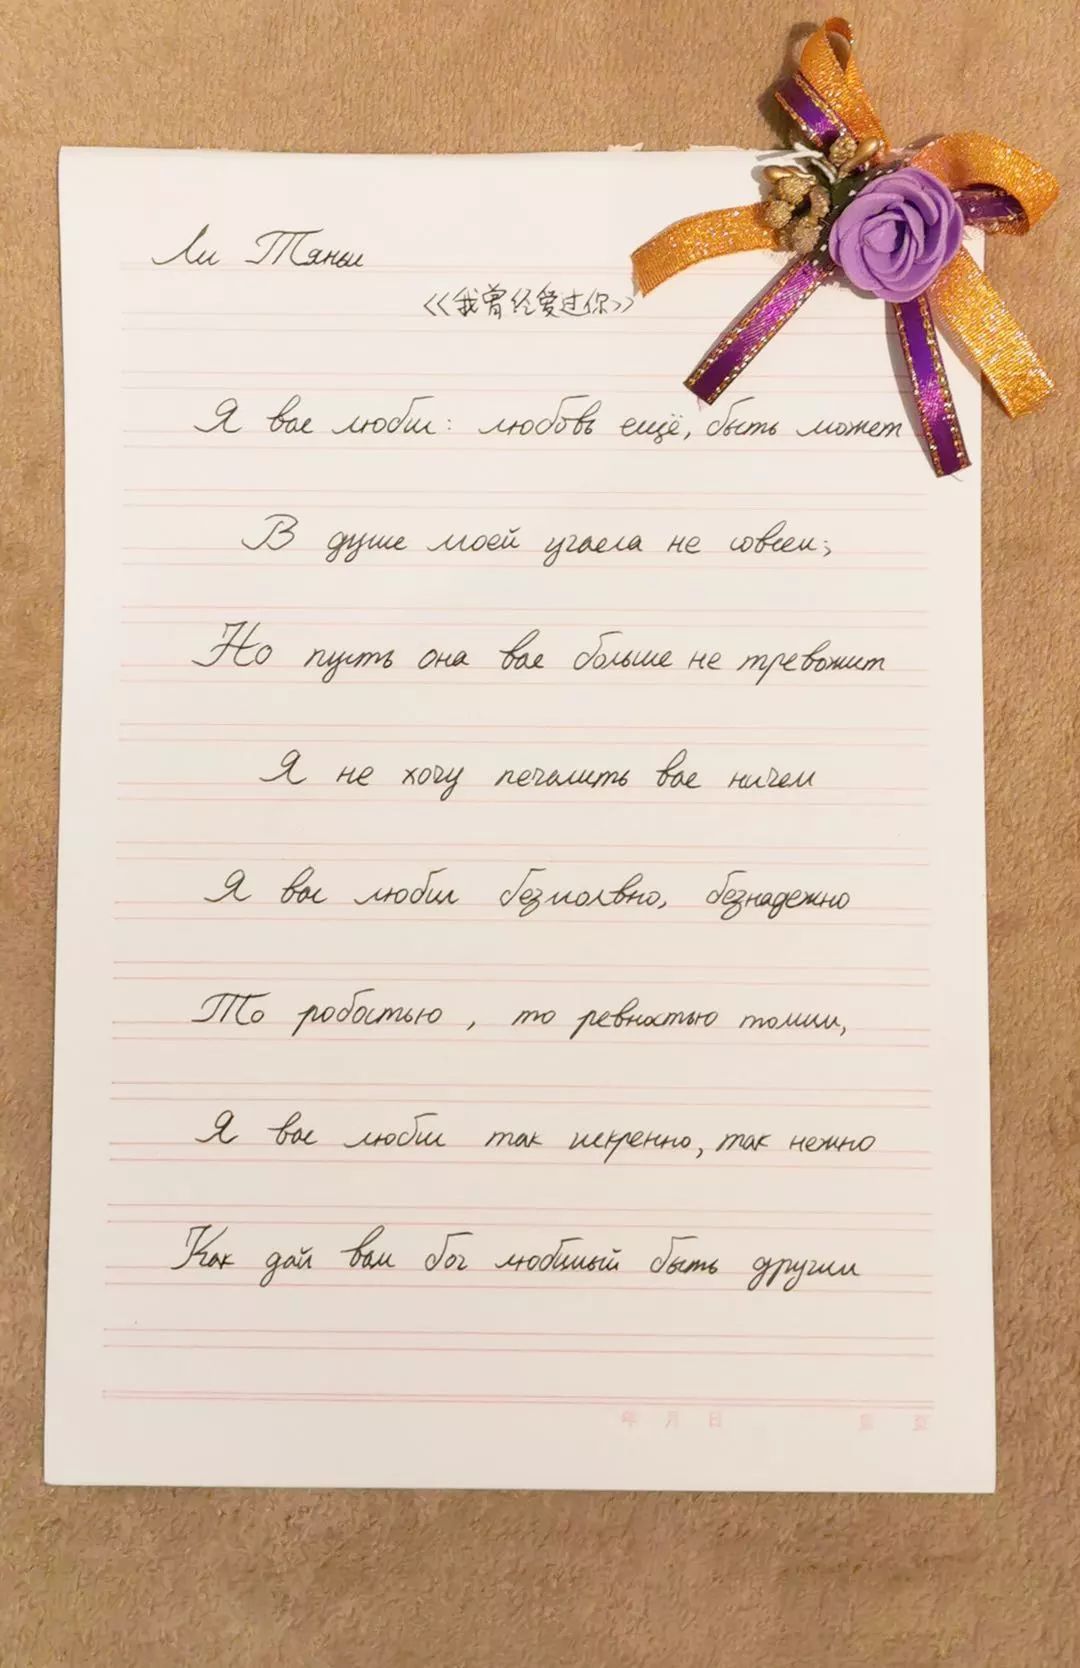 Ли Тяньи
<<我曾经爱过你>>
Я вас любил: любовь ещё, быть может
В душе моей угасла не совсем;
Но пусть она вас больше не тревожит
Я не хочу печалить вас ничем
Я вас любил безмолвно, безнадежно
То робостью, то ревностью томим,
Я вас любил так искренно, так нежно
Как дай вам бог любимый быть другим
年 月 日 第 页